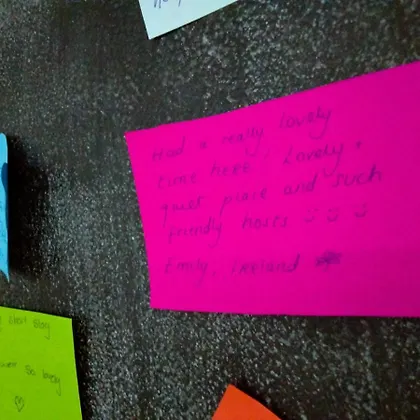 Had a really lovely
time here, Lovely +
quiet place and such
friendly hosts
Emily, Ireland
short stay
so lovely